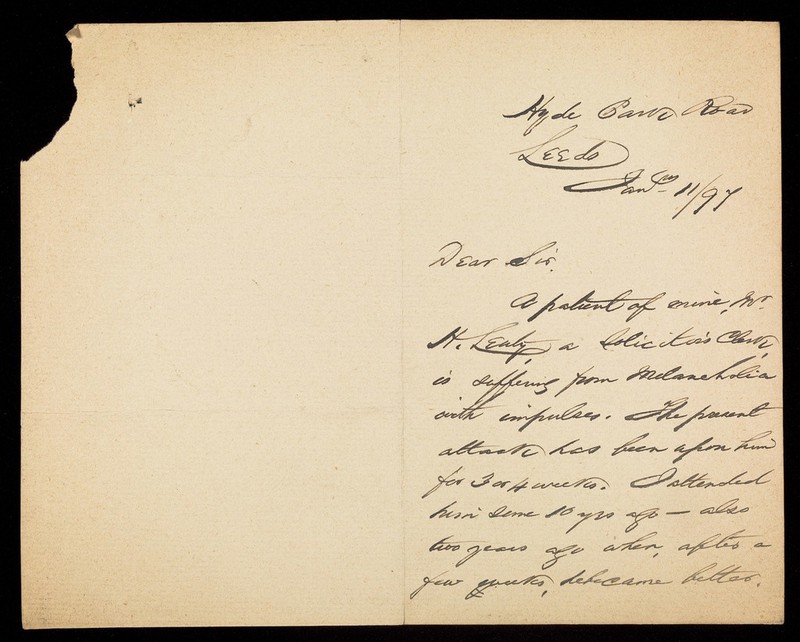 Hyde Park Road
Leeds
Jany 11/97
Dear Sir.
A patient of mine, Mr.
H. a Solicitor's Clerk,
is suffering from Melancholia
with impulses. The present
attack has been upon him
for 3 or 4 weeks. I attended
him some 10 yrs ago — also
two years ago when, after a
few weeks, he became better.